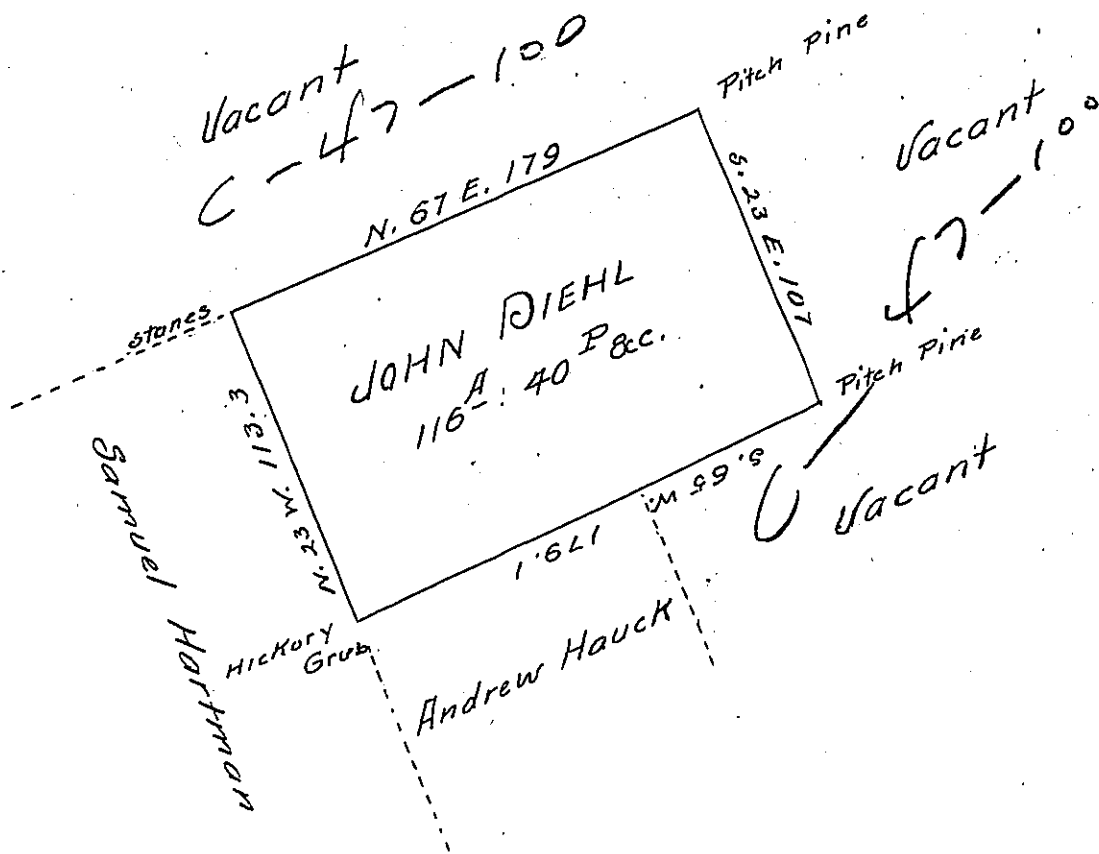 Vacant
C - 47 - 100
Pitch Pine
Vacant
C - 47 - 100
N. 67 E. 179
S. 23 E. 107
stones
JOHN DIEHL
116 A : 40 P &c.
N. 23 W. 113.3
Pitch Pine
S. 65 W.
179.1
Vacant
Samuel Hartman
Hickory
Grub
Andrew Hauck